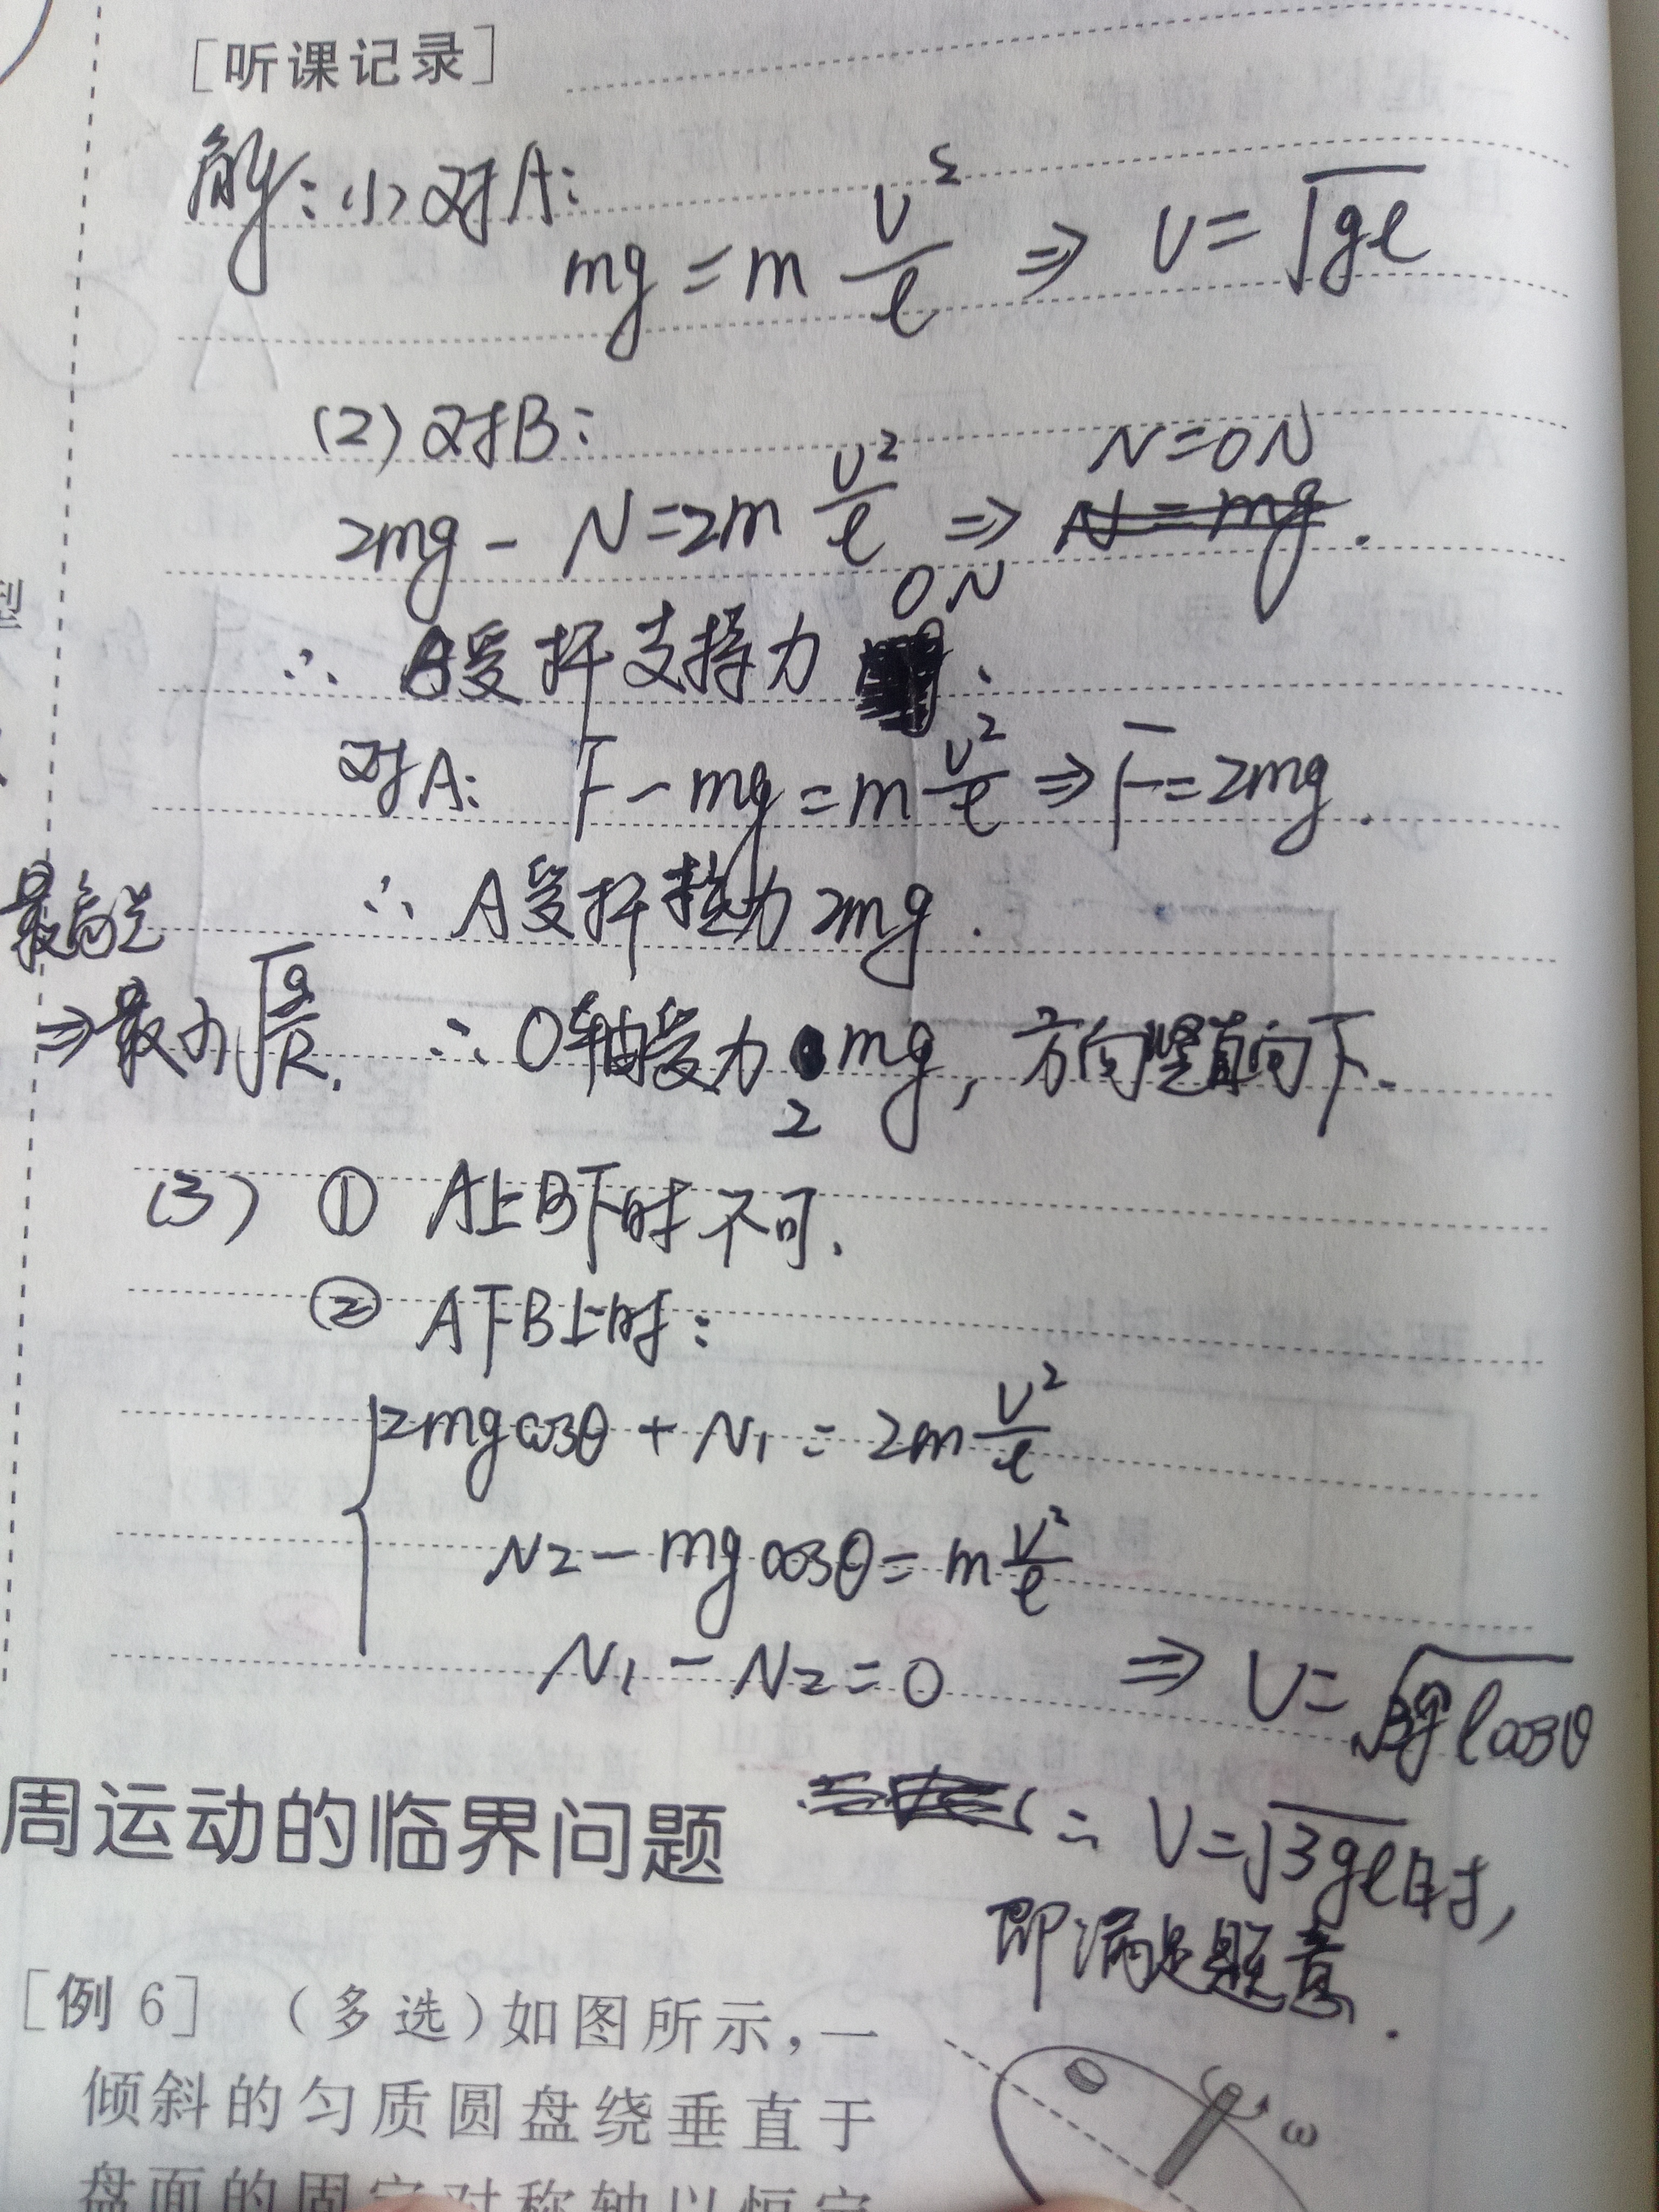 [听课记录]
解：(1)对A：
mg = m v²/l ⇒ v = √gl
(2)对B：
N=0N
2mg - N = 2m v²/l ⇒ N=mg.
0N
∴ B受杆支持力 .
对A： F - mg = m v²/l ⇒ F = 2mg.
∴ A受杆拉力2mg.
最高点
⇒最小√g/R.
∴ O轴受力 2mg，方向竖直向下.
(3) ① A上B下时不可.
② A下B上时：
2mgcosθ + N1 = 2m v²/l
N2 - mgcosθ = m v²/l
N1 - N2 = 0 ⇒ v = √3glcosθ
周运动的临界问题
∴ v=√3gl时，
即满足题意.
[例 6] （多选）如图所示，一
倾斜的匀质圆盘绕垂直于
盘面的固定对称轴以恒定
ω
型